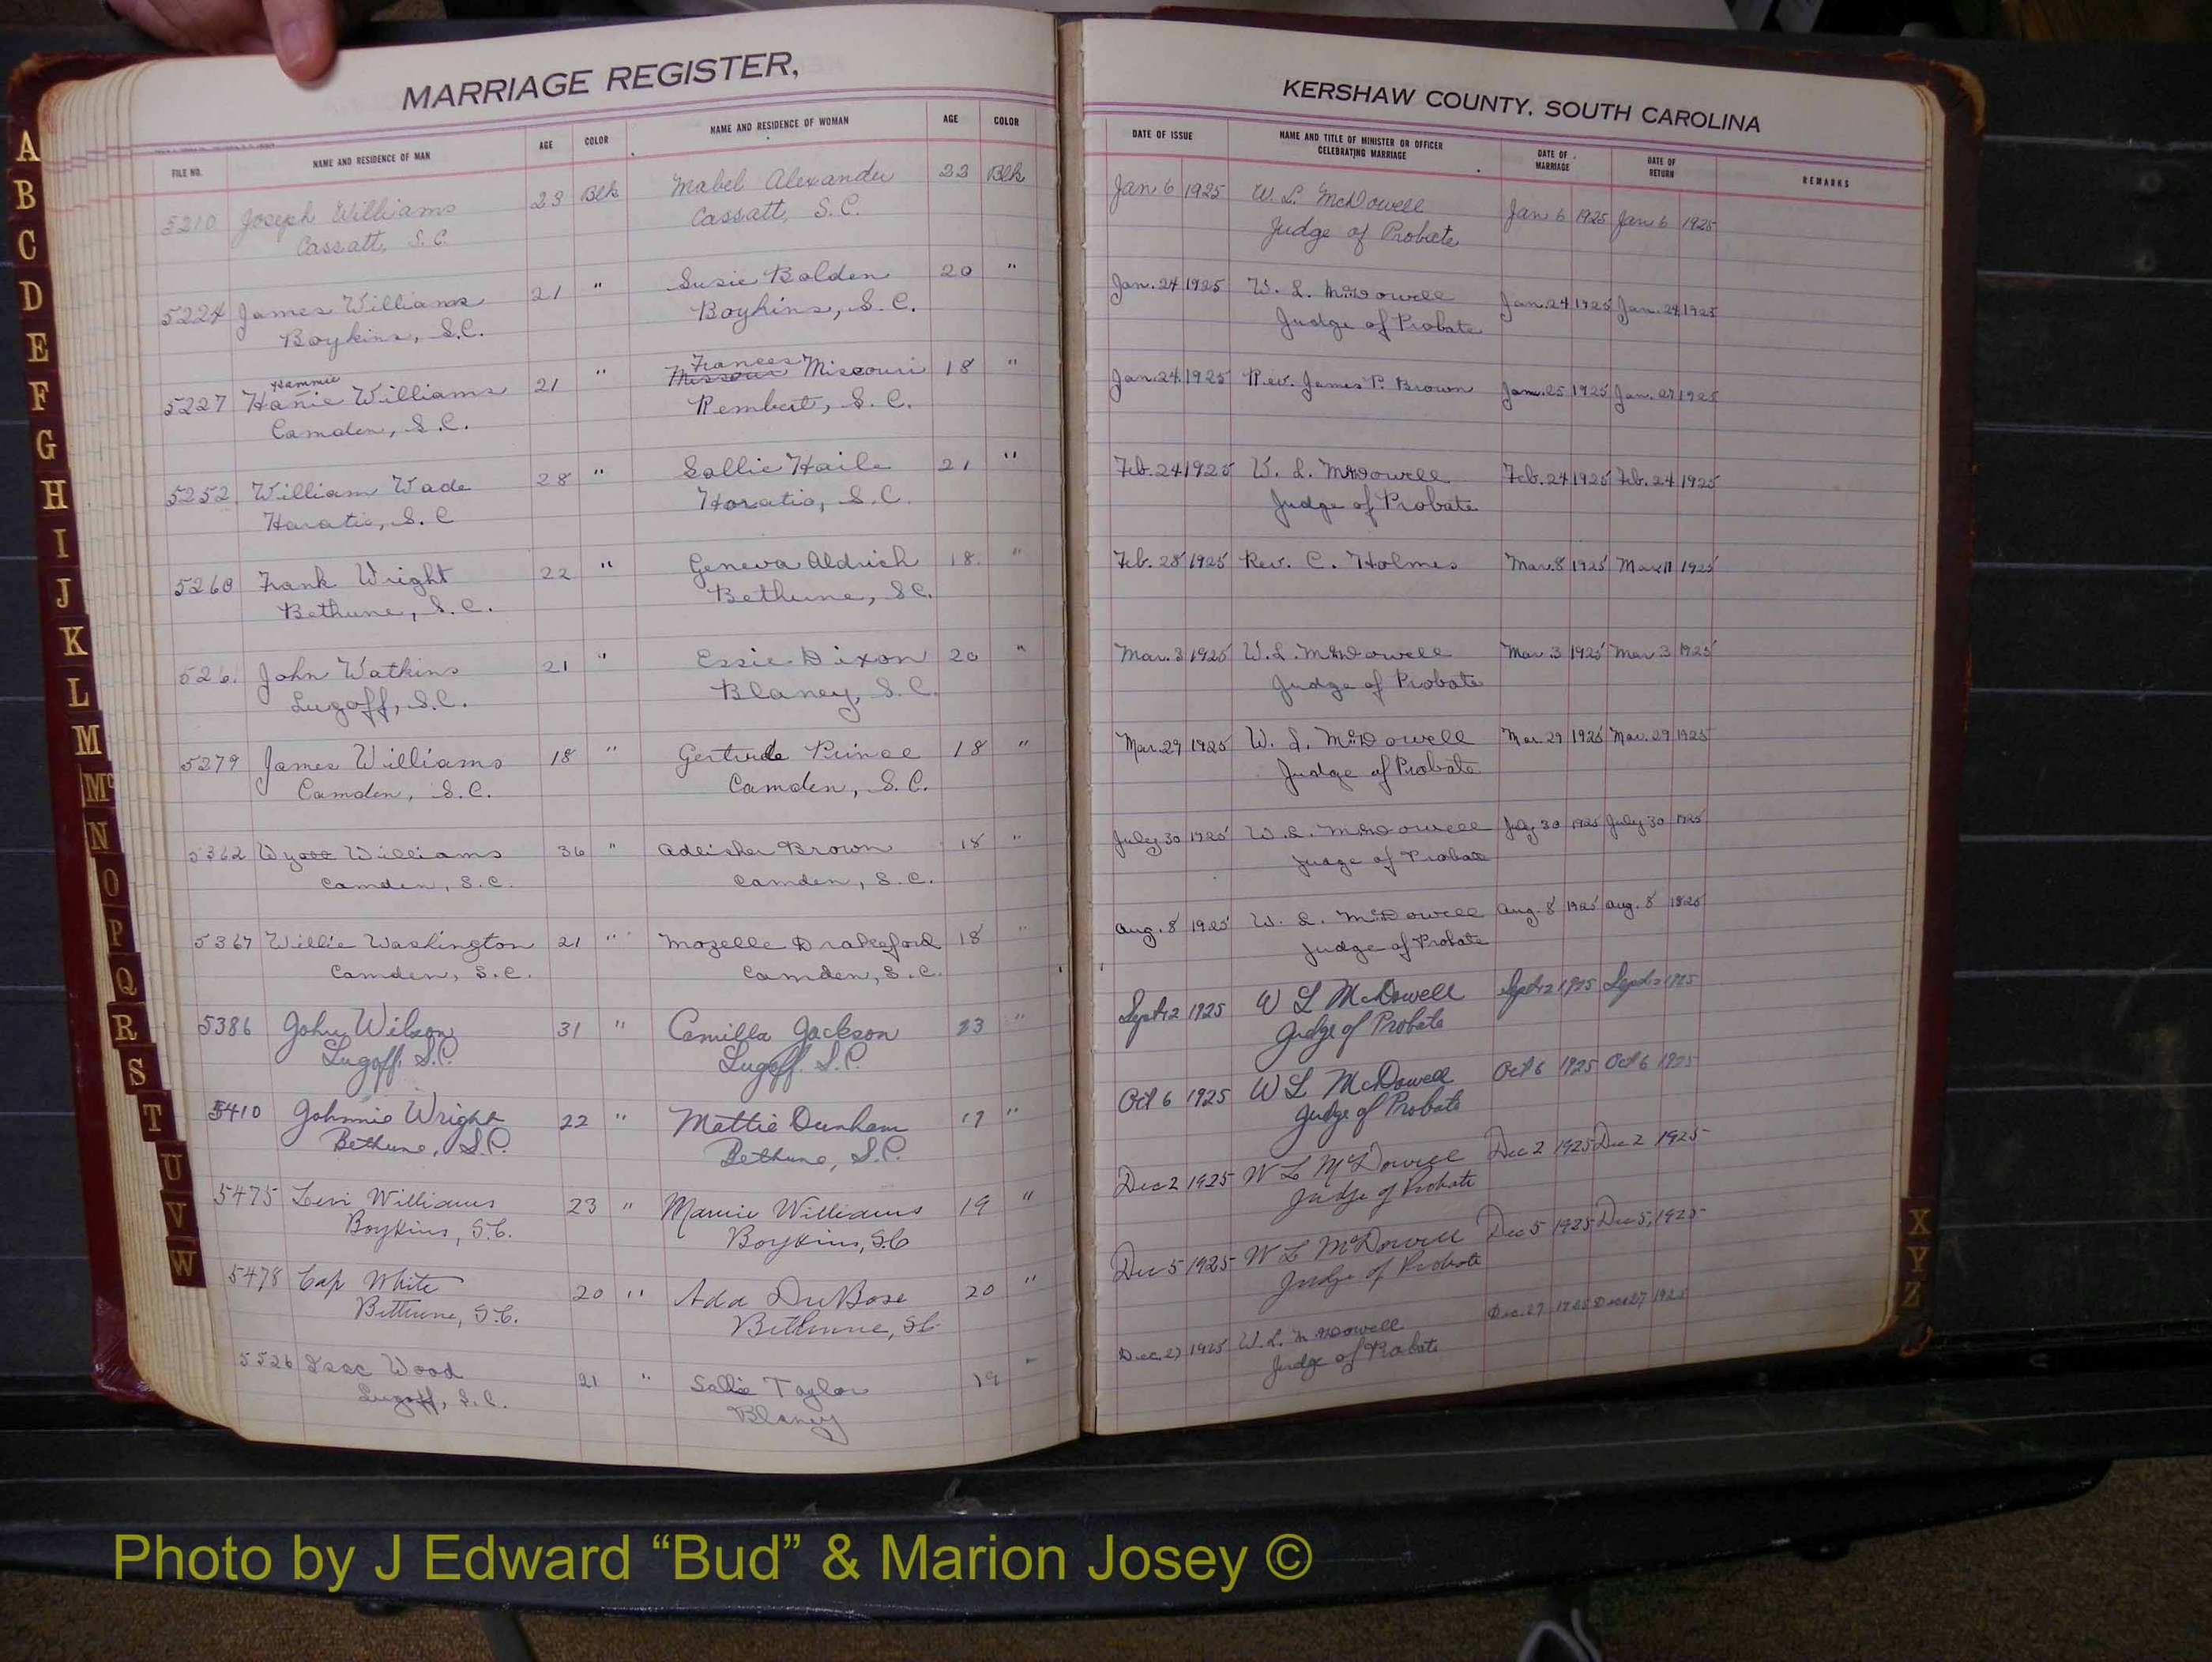 MARRIAGE REGISTER,
FILE NO. NAME AND RESIDENCE OF MAN AGE COLOR NAME AND RESIDENCE OF WOMAN AGE COLOR
5210 Joseph Williams 23 Blk Mabel Alexander 23 Blk
Cassatt, S.C. Cassatt, S.C.
5224 James Williams 21 " Susie Bolden 20 "
Boykins, S.C. Boykins, S.C.
Hammie Frances
5227 Hanie Williams 21 " Missouri Missouri 18 "
Camden, S.C. Rembert, S.C.
5252 William Wade 28 " Sallie Haile 21 "
Horatio, S.C Horatio, S.C.
5260 Frank Wright 22 " Geneva Aldrich 18 "
Bethune, S.C. Bethune, SC.
526 John Watkins 21 " Essie Dixon 20 "
Lugoff, S.C. Blaney, S.C.
5279 James Williams 18 " Gertrude Prince 18 "
Camden, S.C. Camden, S.C.
5362 Wyatt Williams 36 " Adlisher Brown 18 "
Camden, S.C. Camden, S.C.
5367 Willie Washington 21 " Mozelle Drakeford 18 "
Camden, S.C. Camden, S.C.
5386 John Wilson 31 " Camilla Jackson 23 "
Lugoff, S.C. Lugoff. S.C.
5410 Johnnie Wright 22 " Mattie Dunham 19 "
Bethune, S.C. Bethune, S.C.
5475 Levi Williams 23 " Mamie Williams 19 "
Boykins, S.C. Boykins, S.C
5478 Cap White 20 " Ada DuBose 20 "
Bethune, S.C. Bethune, SC
5526 Isac Wood 21 " Sallie Taylor 19 "
Lugoff, S.C. Blaney
KERSHAW COUNTY, SOUTH CAROLINA
DATE OF ISSUE NAME AND TITLE OF MINISTER OR OFFICER CELEBRATING MARRIAGE DATE OF MARRIAGE DATE OF RETURN REMARKS
Jan 6 1925 W. L. McDowell Jan 6 1925 Jan 6 1925
Judge of Probate
Jan. 24 1925 W. L. McDowell Jan. 24 1925 Jan. 24 1925
Judge of Probate
Jan. 24 1925 Rev. James P. Brown Jan. 25 1925 Jan. 27 1925
Feb. 24 1925 W. L. McDowell Feb. 24 1925 Feb. 24 1925
Judge of Probate
Feb. 28 1925 Rev. C. Holmes Mar. 8 1925 Mar. 11 1925
Mar. 3 1925 W. L. McDowell Mar. 3 1925 Mar 3 1925
Judge of Probate
Mar. 29 1925 W. L. McDowell Mar. 29 1925 Mar. 29 1925
Judge of Probate
July 30 1925 W. L. McDowell July 30 1925 July 30 1925
Judge of Probate
Aug. 8 1925 W. L. McDowell Aug. 8 1925 Aug. 8 1825
Judge of Probate
Sept 12 1925 W L McDowell Sept 12 1925 Sept 12 1925
Judge of Probate
Oct 6 1925 W L McDowell Oct 6 1925 Oct 6 1925
Judge of Probate
Dec 2 1925 W L McDowell Dec 2 1925 Dec 2 1925
Judge of Probate
Dec 5 1925 W L McDowell Dec 5 1925 Dec 5, 1925
Judge of Probate
Dec. 27 1925 W. L. McDowell Dec. 27 1925 Dec 27 1925
Judge of Probate
A
B
C
D
E
F
G
H
I
J
K
L
M
Mc
N
O
P
Q
R
S
T
U
V
W
X
Y
Z
Photo by J Edward “Bud” & Marion Josey ©